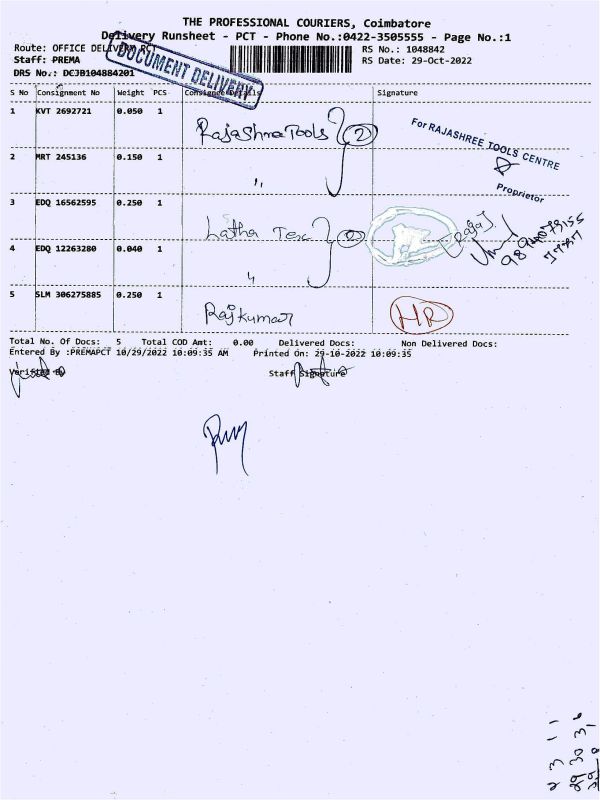 THE PROFESSIONAL COURIERS, Coimbatore
Delivery Runsheet - PCT - Phone No.:0422-3505555 - Page No.:1
Route: OFFICE DELIVERY PCT
RS No.: 1048842
Staff: PREMA
RS Date: 29-Oct-2022
DRS No.: DCJB104884201
DOCUMENT DELIVERY
S No Consignment No Weight PCS Consignee Details Signature
1 KVT 2692721 0.050 1 Rajashree Tools 2
For RAJASHREE TOOLS CENTRE
Proprietor
2 MRT 245136 0.150 1 "
3 EDQ 16562595 0.250 1 Latha Tex
4 EDQ 12263280 0.040 1 "
5 SLM 306275885 0.250 1 Rajkumar HR
Total No. Of Docs: 5 Total COD Amt: 0.00 Delivered Docs: Non Delivered Docs:
Entered By :PREMAPCT 10/29/2022 10:09:35 AM Printed On: 29-10-2022 10:09:35
Verified By Staff Signature